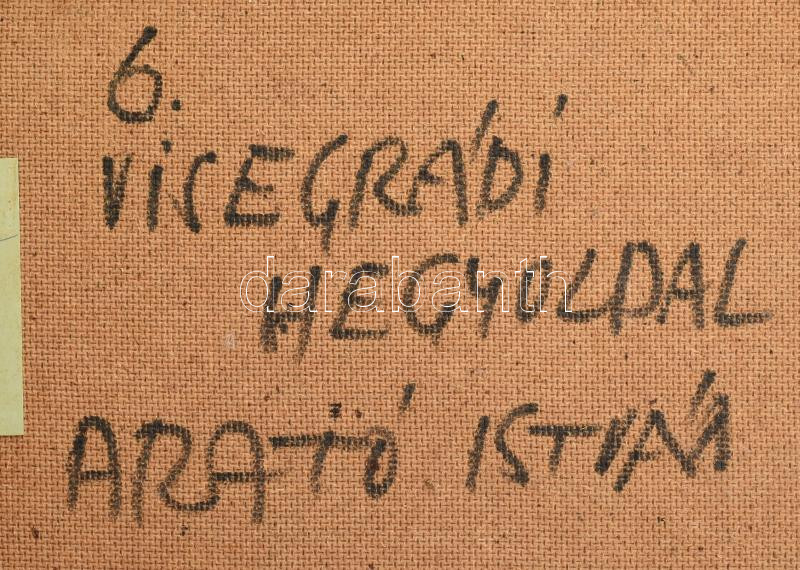 6.
VISEGRÁDI
HEGYOLDAL
darabanth
ARATÓ ISTVÁN